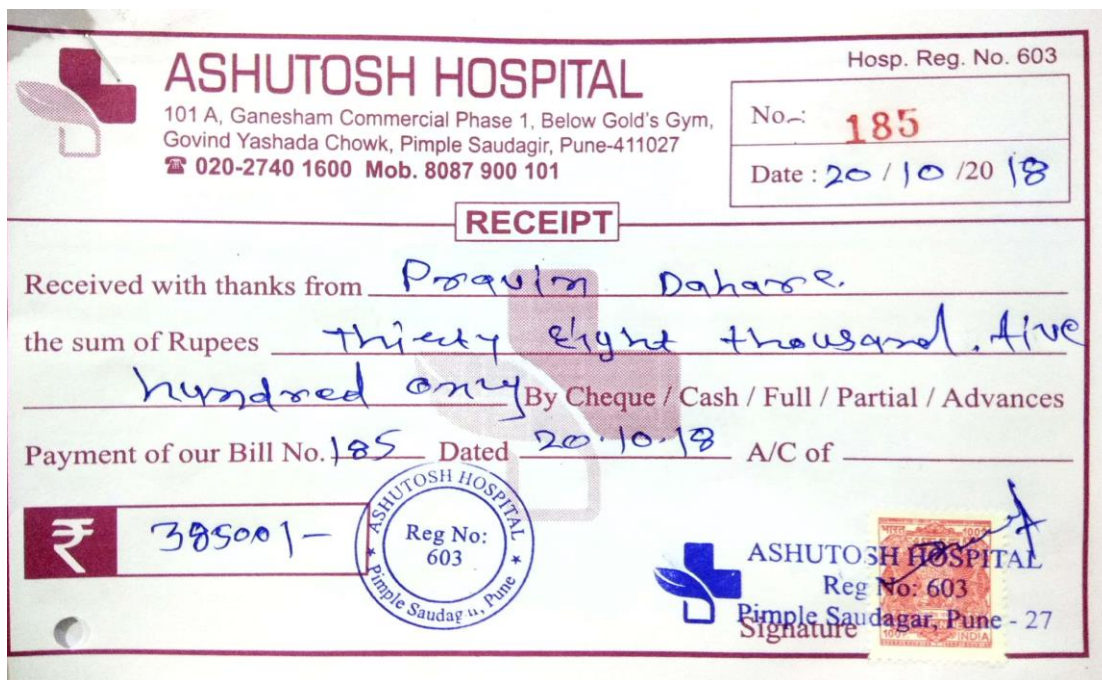 Hosp. Reg. No. 603
ASHUTOSH HOSPITAL
101 A, Ganesham Commercial Phase 1, Below Gold's Gym,
Govind Yashada Chowk, Pimple Saudagir, Pune-411027
☎ 020-2740 1600 Mob. 8087 900 101
No.: 185
Date : 20 / 10 /20 18
RECEIPT
Received with thanks from Pravin Dahare.
the sum of Rupees Thirty Eight thousand. five
hundred only By Cheque / Cash / Full / Partial / Advances
Payment of our Bill No. 185 Dated 20.10.18 A/C of
₹ 38500/-
ASHUTOSH HOSPITAL
Reg No:
603
★ Pimple Saudag , Pune ★
ASHUTOSH HOSPITAL
Reg No: 603
Pimple Saudagar, Pune - 27
Signature
भारत 100
100 INDIA